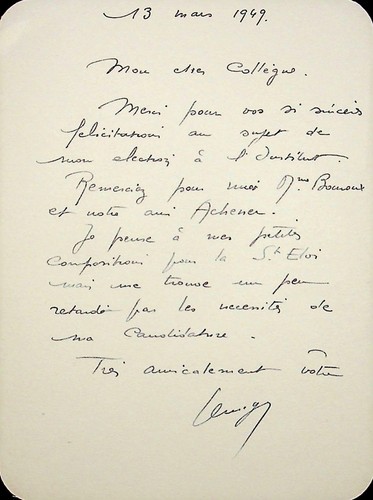 13 mars 1949.
Mon cher Collègue.
Merci pour vos si sincères
félicitations au sujet de
mon election à l'Institut.
Remerciez pour moi Mme
et notre ami Achener.
Je pense à mes petites
compositions pour la St Eloi
mais me trouve un peu
retardé par les necessités de
ma Candidature.
Très amicalement vôtre